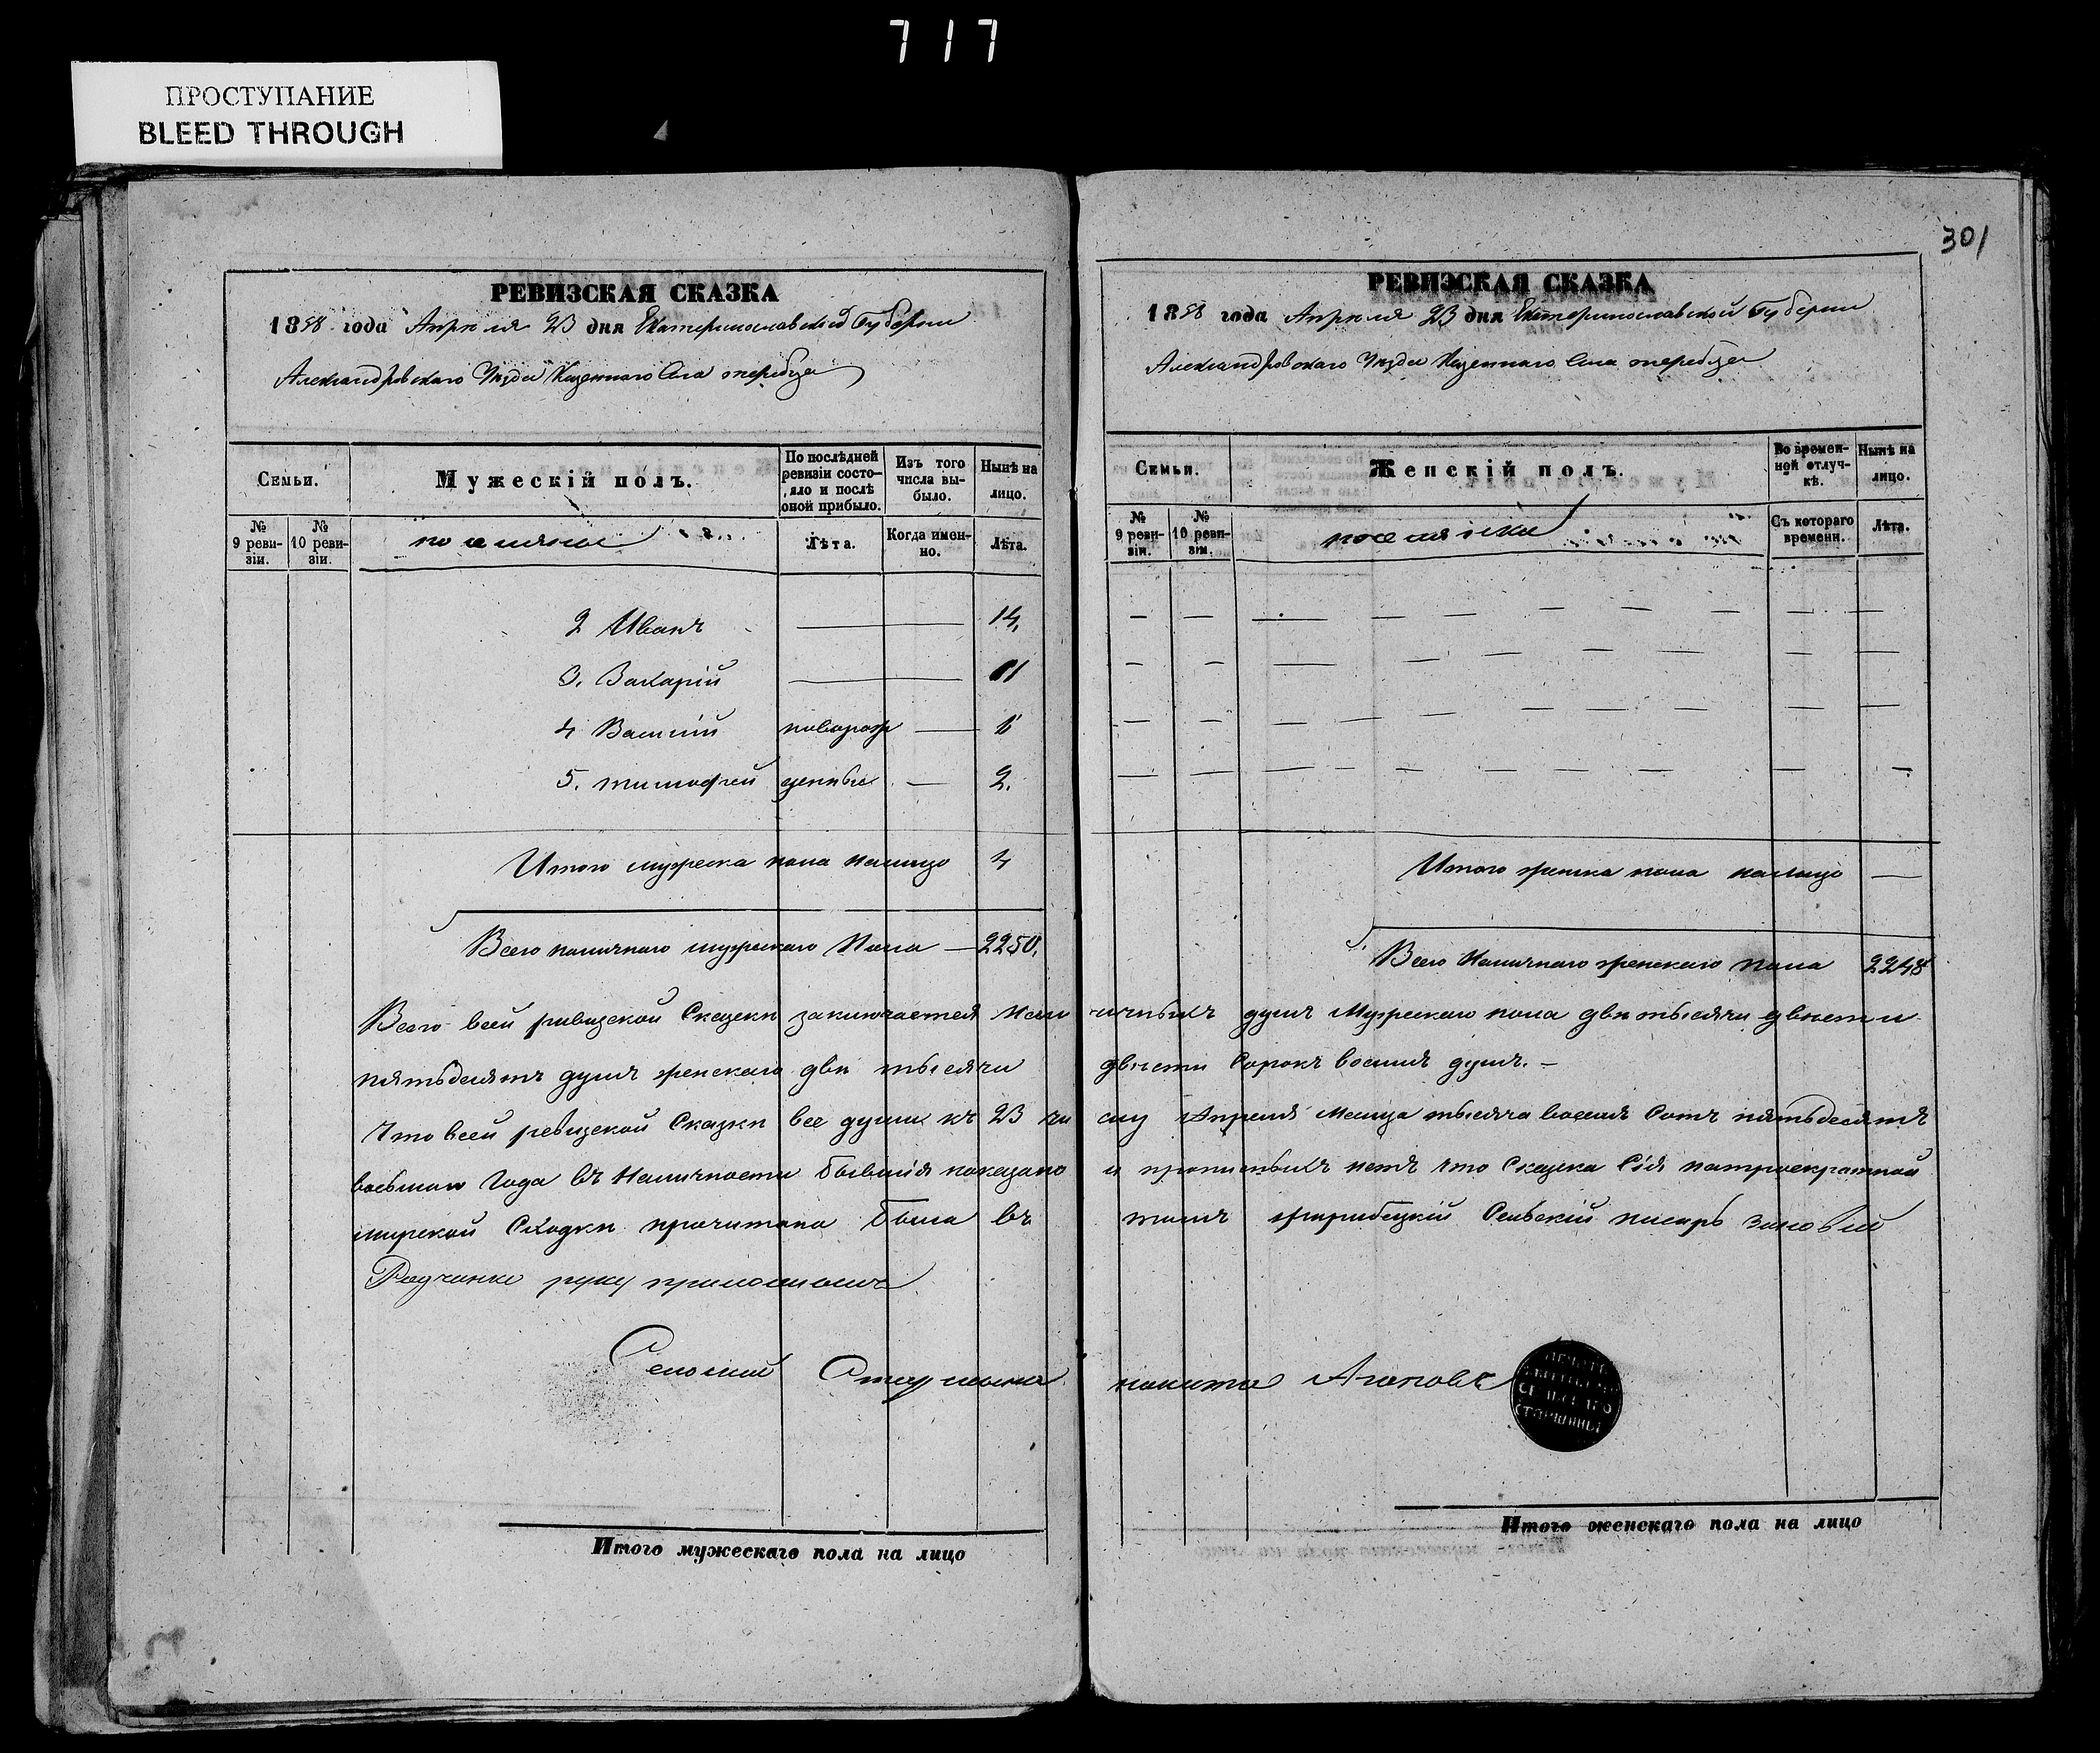 717
ПРОСТУПАНИЕ
BLEED THROUGH
РЕВИЗСКАЯ СКАЗКА
1858 года Апрѣля 23 дня Екатеринославской Губерніи
Александровскаго Уѣзда Казеннаго Села жеребца
Семьи.
Мужескій полъ.
По послѣдней ревизіи состояло и послѣ оной прибыло.
Изъ того числа выбыло.
Нынѣ на лицо.
№ 9 ревизіи.
№ 10 ревизіи.
поселяне
Лѣта.
Когда именно.
Лѣта.
2 Иванъ — 14,
3. Захарій — 11
4 Василій новорож — 6
5. тимофей денные — 2.
Итого мужеска пола налицо 4
Всего наличнаго мужескаго Пола — 2250.
301
РЕВИЗСКАЯ СКАЗКА
1858 года Апрѣля 23 дня Екатеринославской Губерніи
Александровскаго Уѣзда Казеннаго Села жеребца
Семьи.
Женскій полъ.
Во временной отлучкѣ.
Нынѣ на лицо.
№ 9 ревизіи.
№ 10 ревизіи.
поселянки
Съ котораго времени.
Лѣта.
Итого женска пола налицо —
Всего Наличнаго женскаго пола 2248
Всего всей ривизской Сказки заключается нали чныхъ душъ Мужескаго пола двѣ тысячи двѣсти
пятьдесятъ душъ женскаго двѣ тысячи двѣсти Сорокъ восемь душъ. —
Что всей ревизской Сказки все души къ 23 чи слу Апреля Месяца тысяча восемь Сотъ пятьдесятъ
восьмаго Года въ Наличности бывшія показано и прописныхъ нетъ что Сказка Сія на троекратной
мирской Сходки прочитана была въ томъ жеребецкій Сельскій писарь Зиновій
Радченко руку приложилъ
Селскій Старшина никита Агаповъ
ПЕЧАТЬ
СЕЛЬСКАГО
СТАРШИНЫ
Итого мужескаго пола на лицо
Итого женскаго пола на лицо